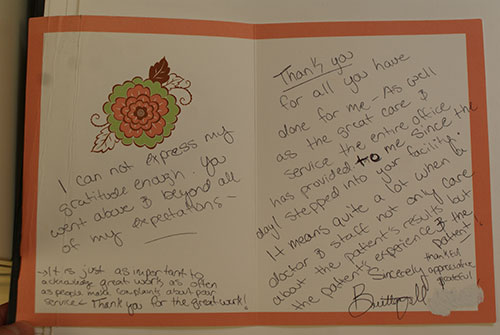 I can not express my
gratitude enough. You
went above & beyond all
of my expectations—
→It is just as important to
acknowledge great work as often
as people make complaints about poor
service← Thank you for the great work!
Thank you
for all you have
done for me—As well
as the great care &
service the entire office
has provided to me since the
day I stepped into your facility.
It means quite a lot when a
doctor & staff not only care
about the patient's results but
the patient's experience & the
patient!
Sincerely,
thankful
appreciative
grateful!